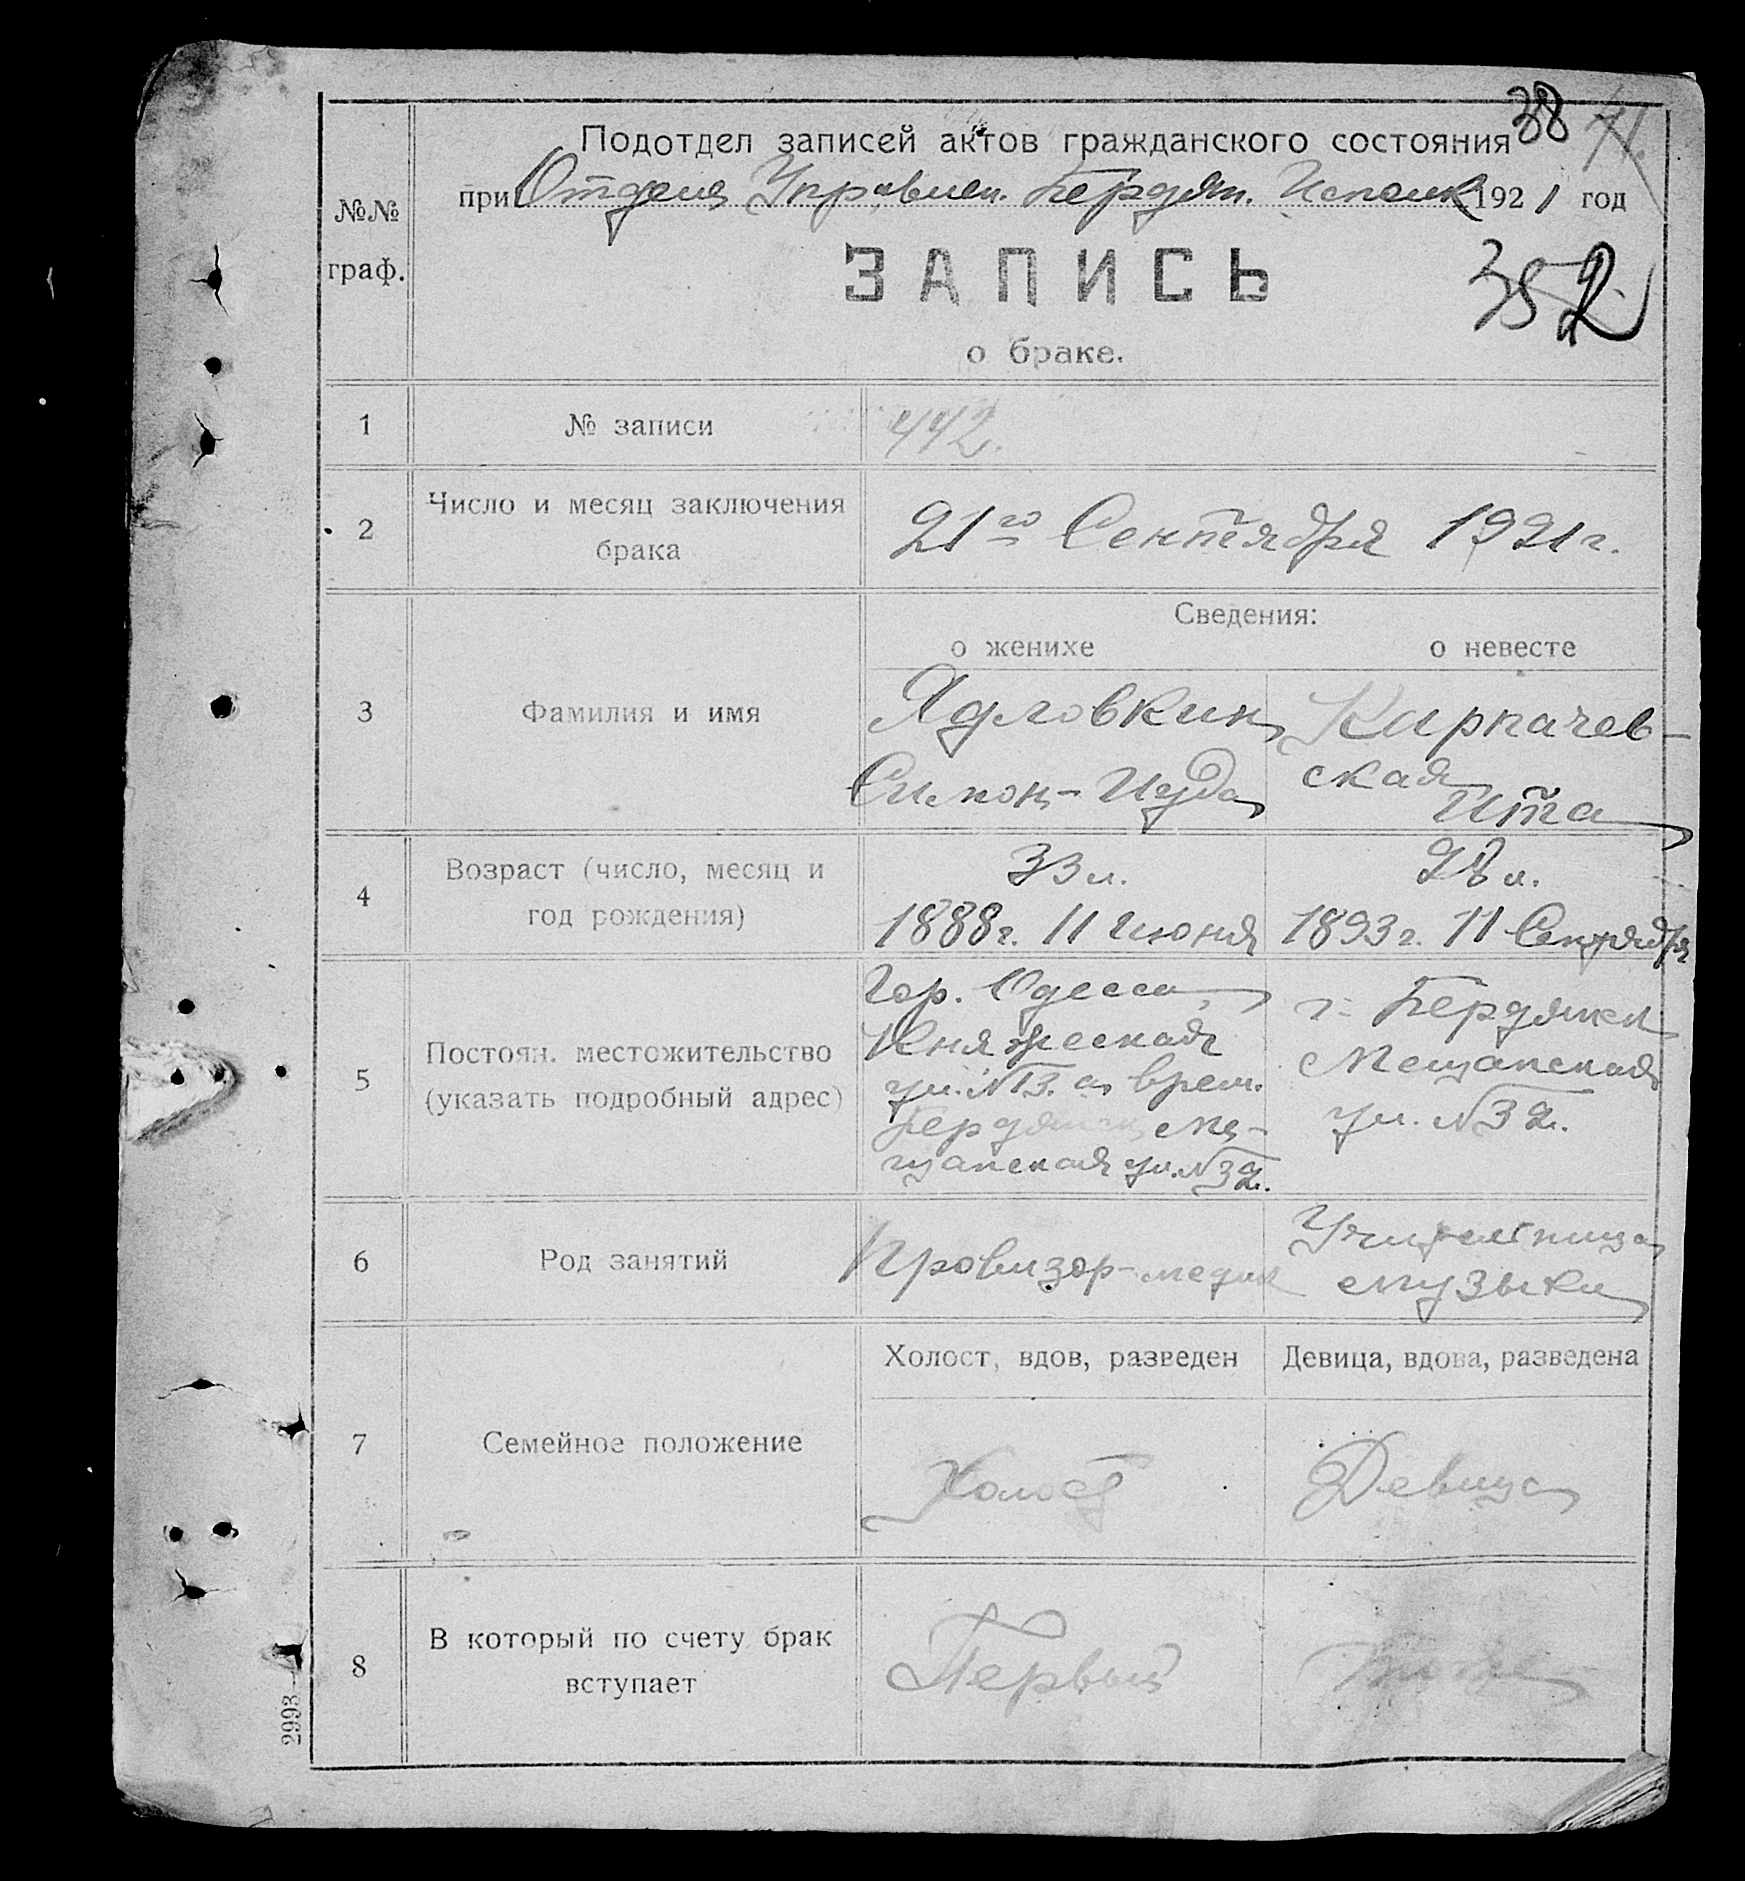 38 71
Подотдел записей актов гражданского состояния
при Отделе Управлен. Бердян. Исполк 1921 год
№№
граф.
ЗАПИСЬ
352
о браке.
1 № записи 442.
2 Число и месяц заключения
брака
21го Сентября 1921 г.
Сведения:
о женихе о невесте
3 Фамилия и имя
Ядловкин
Симон-Иуда
Карпачев-
ская
Ита
4 Возраст (число, месяц и
год рождения)
33 л.
1888 г. 11 Июня
28 л.
1893 г. 11 Сентября
5 Постоян. местожительство
(указать подробный адрес)
Гор. Одесса,
Княжеская
ул. № 13. а врем.
Бердянск Ме-
щанская ул. № 32.
г. Бердянск
Мещанская
ул. № 32.
6 Род занятий
Провизор-медик
Учительница
музыки
7 Семейное положение
Холост, вдов, разведен Девица, вдова, разведена
Холост Девица
8 В который по счету брак
вступает
Первый
2993